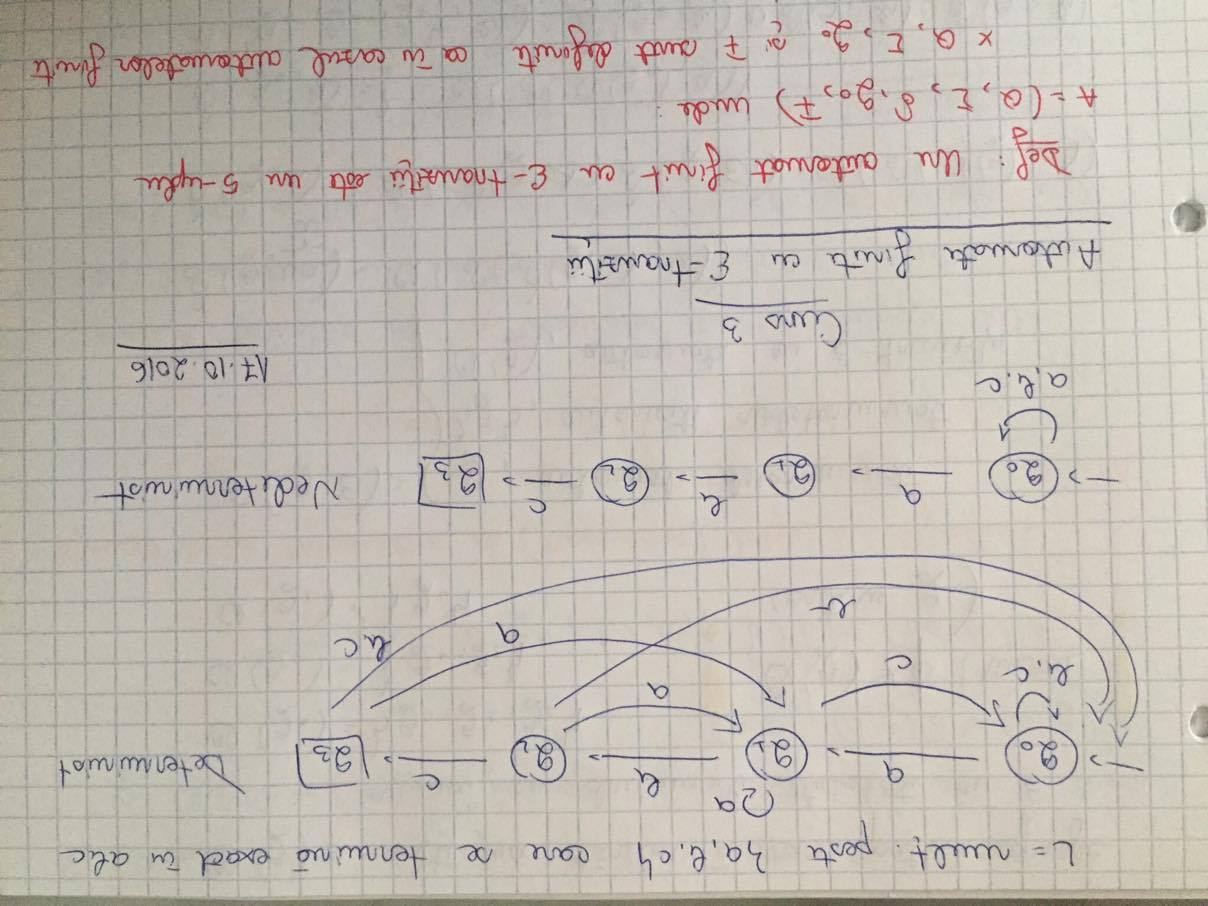 L = mult. peste {a,b,c} care se termină exact în abc
a
→ q0 a → q1 b → q2 c → q3 Determinist
b,c c a b a b,c
→ q0 a → q1 b → q2 c → q3 Nedeterminist
a,b,c
17.10.2016
Curs 3
Automate finite cu ε-tranziții
Def: Un automat finit cu ε-tranziții este un 5-uplu
A = (Q, Σ, δ, q0, F) unde:
× Q, Σ, q0 și F sunt definiti ca în cazul automatelor finite